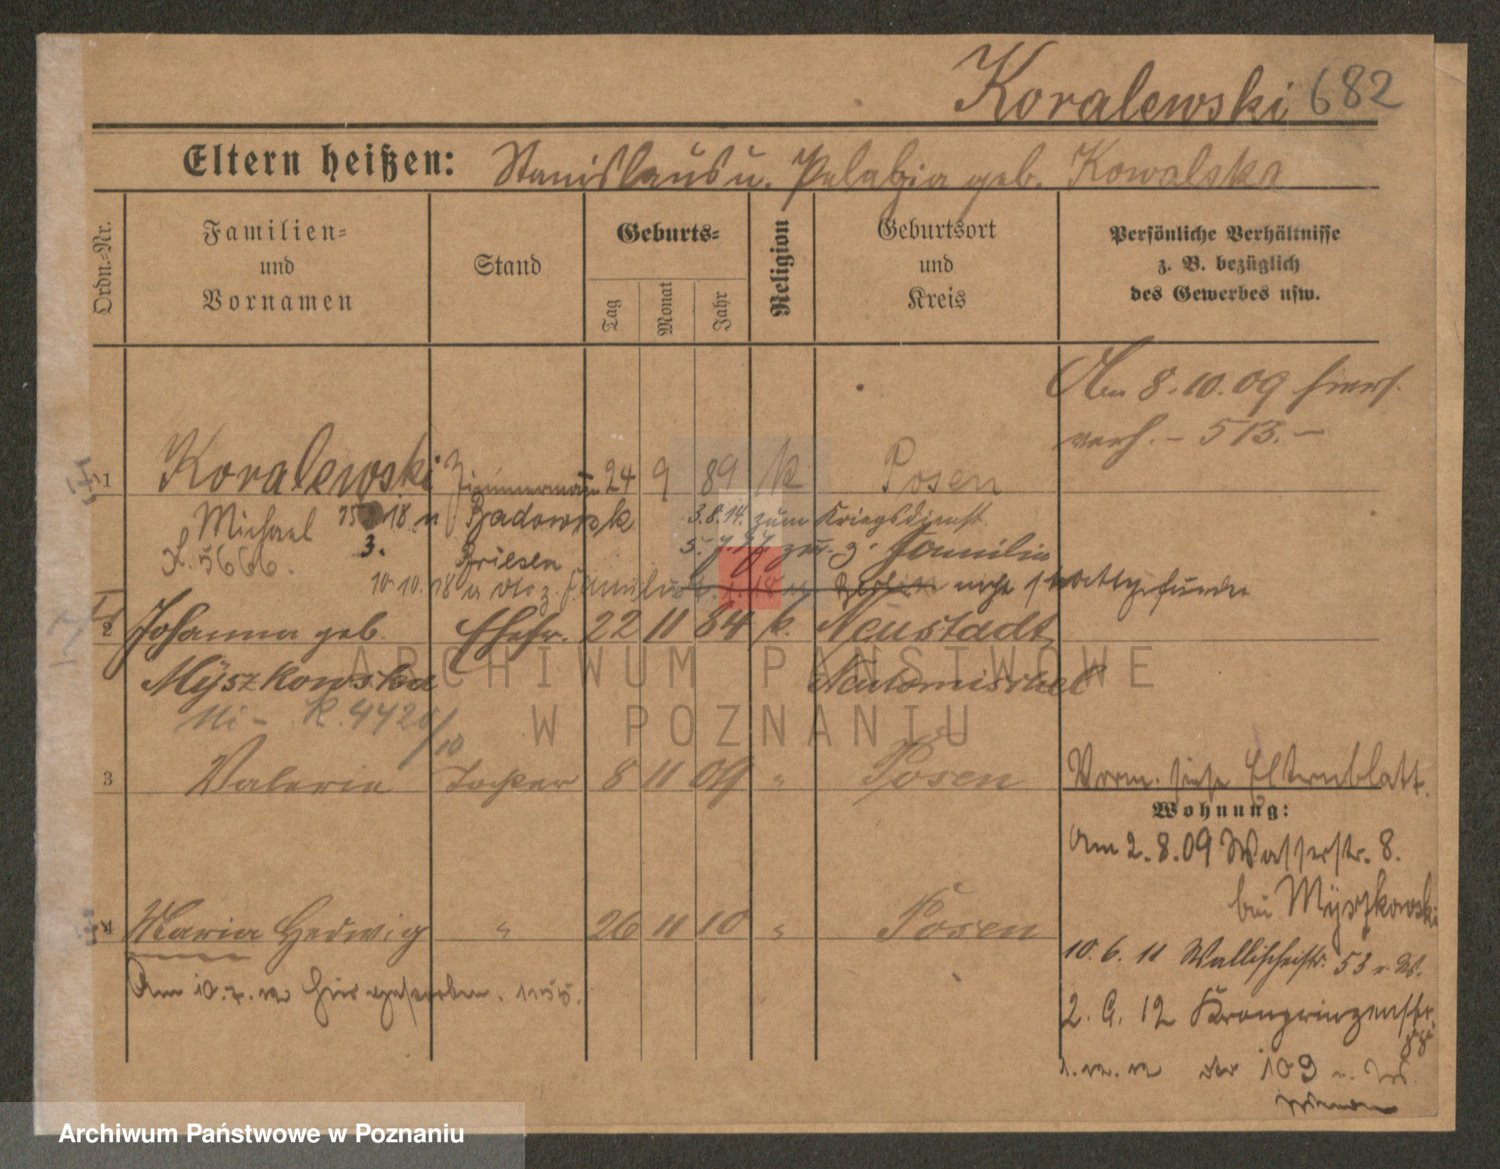 Koralewski 682
Eltern heißen: Stanislaus u. Pelagia geb. Kowalska
Ordn.-Nr.
Familien- und Vornamen
Stand
Geburts-
Tag Monat Jahr
Religion
Geburtsort und Kreis
Persönliche Verhältnisse z. B. bezüglich des Gewerbes usw.
Am 8.10.09
verh. - 513. -
1 Koralewski Zimmermann 24 9 89 k Posen
Michael 18. n Badowsk 3.8.14. zum Kriegsdienst
5666. 3. Briesen 5. z. Familie
10.10.18 z. Familie nicht stattgefunden
2 Johanna geb. Ehefr. 22 11 84 k. Neustadt
Myszkowska Neutomischel
R. 4420/10
3 Valerie Tochter 8 11 09 " Posen
Vorm. siehe Elternblatt.
Wohnung:
Am 2.8.09 Wasserstr. 8.
bei Myszkowski
4 Maria Hedwig " 26 11 10 " Posen
Am 10. hier gestorben. 1155.
10.6.11 Wallischeistr. 53 v. W.
2. 12 Kronprinzenstr. 88
1. dto 109
ARCHIWUM PAŃSTWOWE
W POZNANIU
Archiwum Państwowe w Poznaniu